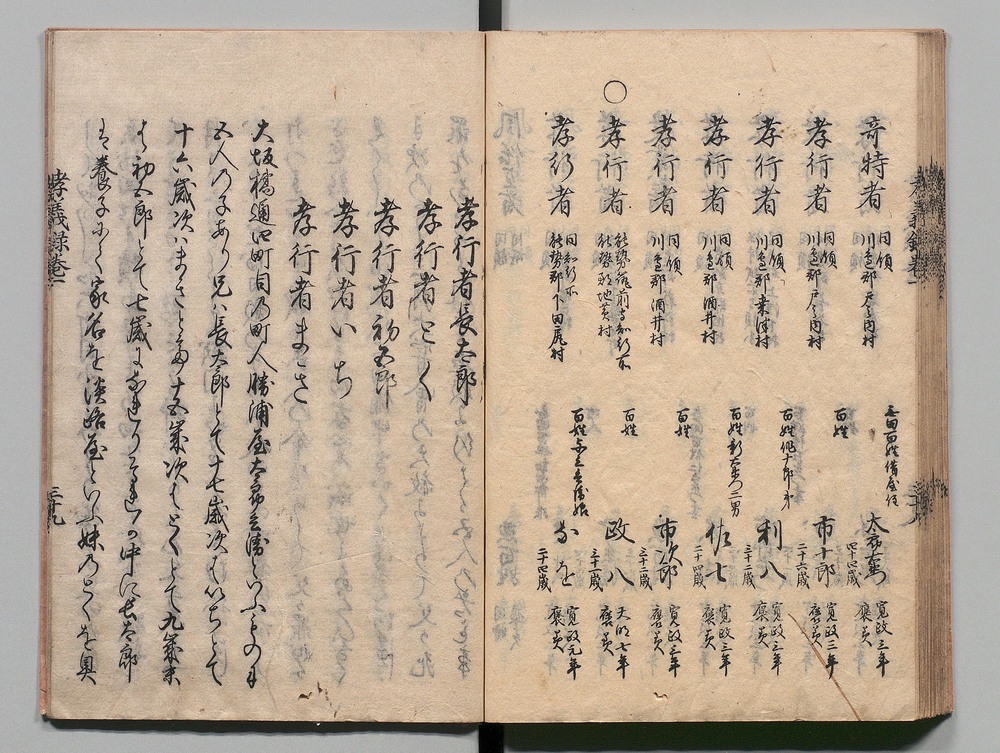 奇特者 同領 川邉郡戸之内村 百姓備 太郎右衛門 四十四歳 寛政三年 褒美
孝行者 同領 川邉郡戸之内村 百姓 市十郎 二十六歳 寛政二年 褒美
孝行者 同領 川邉郡桒津村 百姓 十郎弟 利八 三十二歳 寛政三年 褒美
孝行者 同領 川邉郡酒井村 百姓 二男 佐七 二十四歳 寛政三年 褒美
孝行者 同領 川邉郡酒井村 百姓 市次郎 三十二歳 寛政三年 褒美
○孝行者 能勢筑前守知行所 能勢郡地黄村 百姓 政八 三十一歳 天明七年 褒美
孝行者 同知行所 能勢郡下田尻村 百姓 娘 なを 二十四歳 寛政元年 褒美
孝行者長太郎
孝行者とく
孝行者初五郎
孝行者いち
孝行者まさ
大坂橋通四町目乃町人勝浦屋太郎兵衛といふものハ
五人乃子あり兄ハ長太郎とて十七歳次はいちとて
十六歳次ハまさとて十五歳次はとくとて九歳末
は初五郎とて七歳になれり中に長太郎
は養子にて家名を淡路屋といふ妹乃とくを具
孝義録巻一
三十九